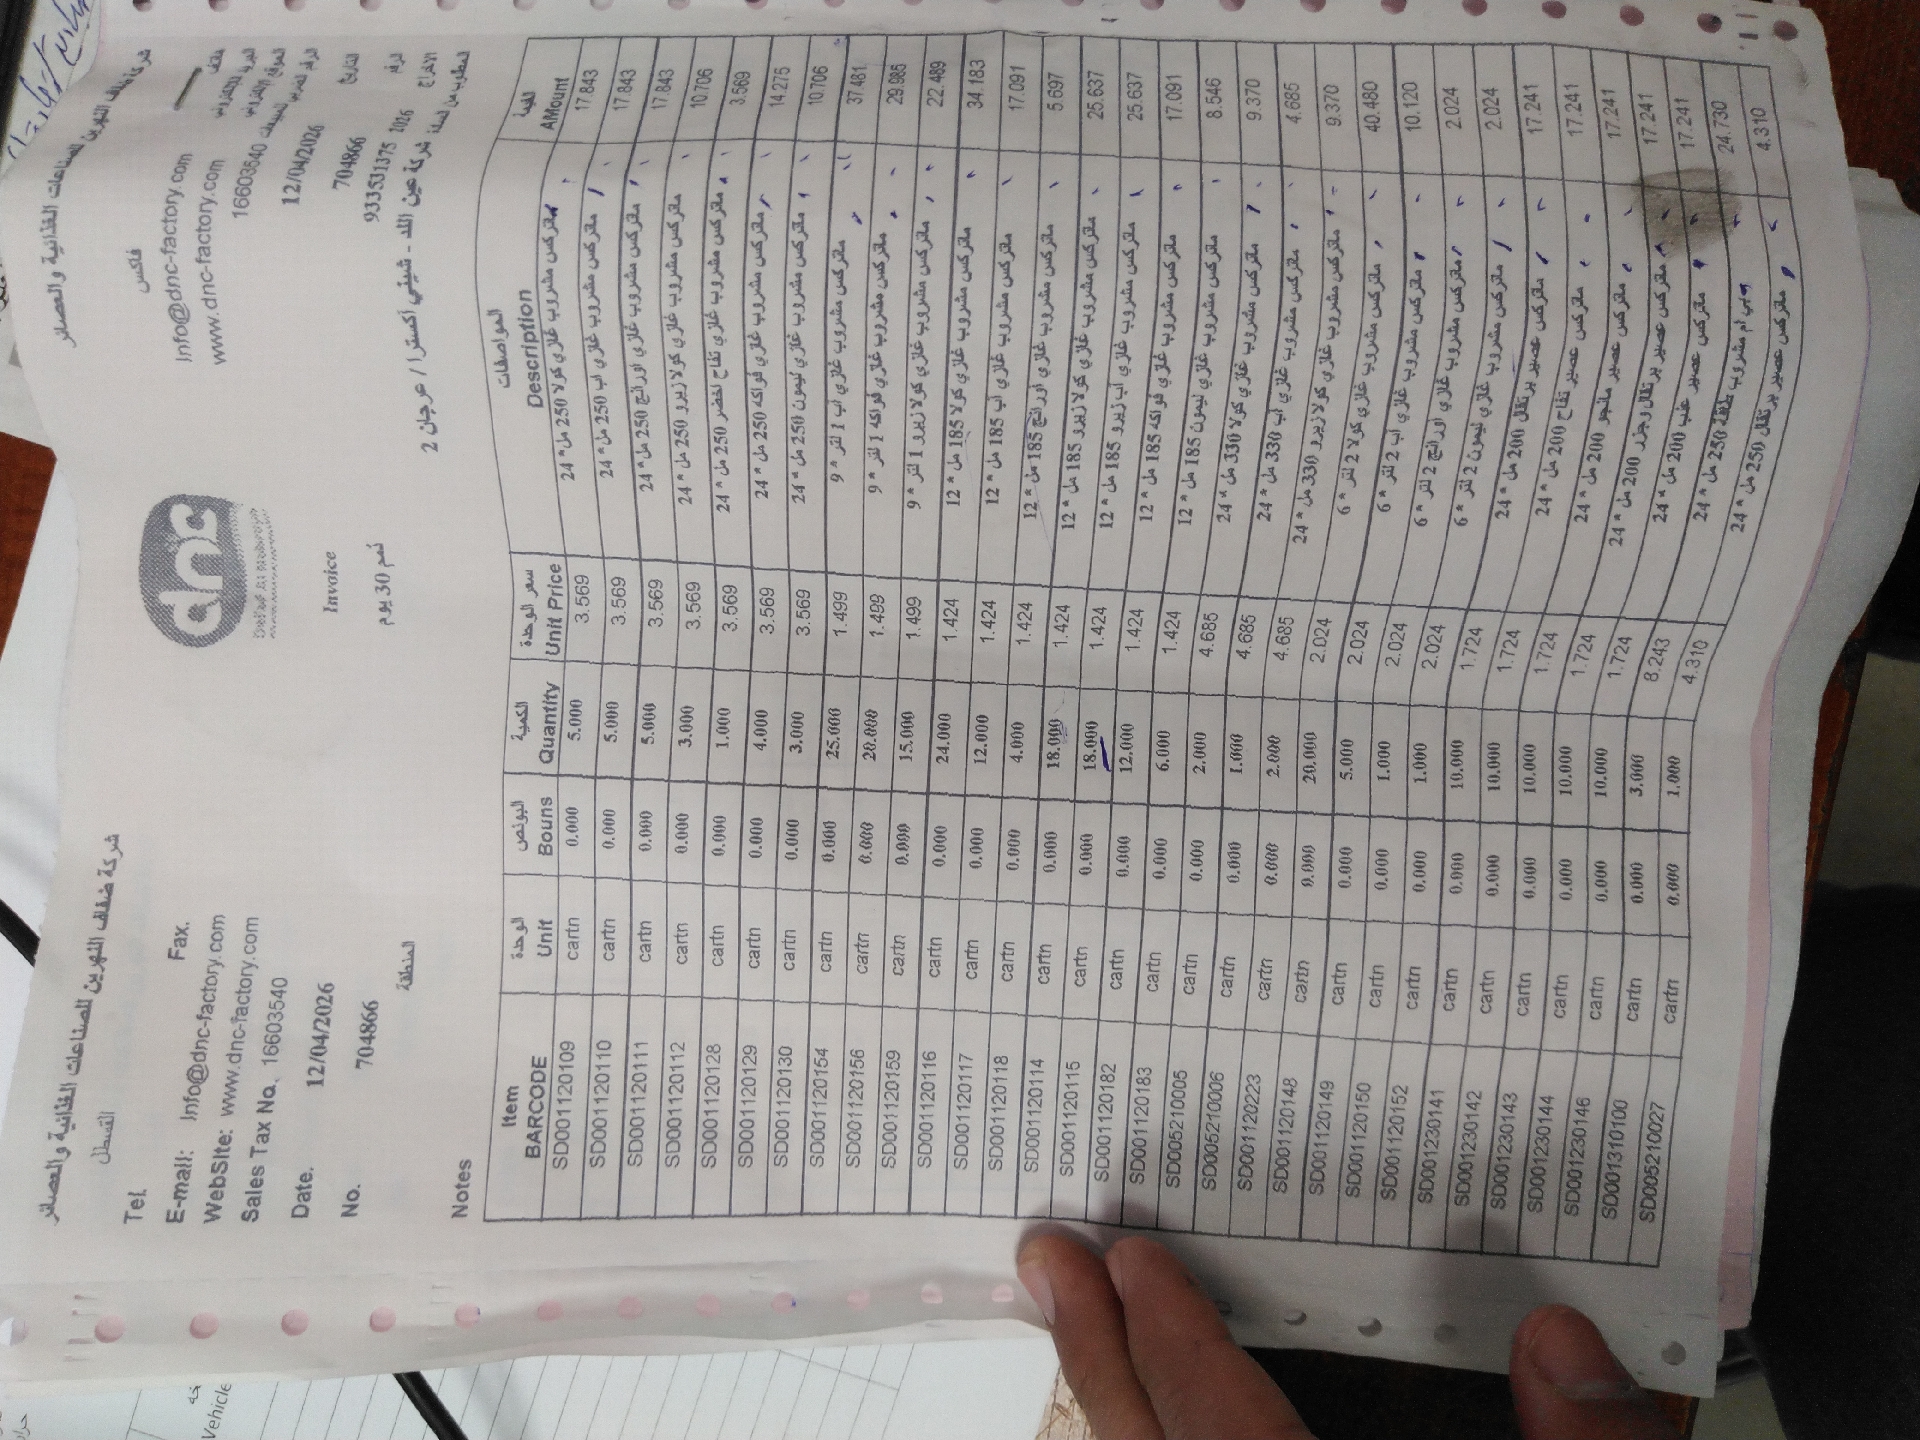 شركة ضفاف النهرين للصناعات الغذائية والعصائر
شركة ضفاف النهرين للصناعات الغذائية والعصائر
القسطل
Tel.
هاتف
فاكس
Fax.
E-mail: Info@dnc-factory.com
Info@dnc-factory.com
WebSIte: www.dnc-factory.com
www.dnc-factory.com
Sales Tax No. 16603540
16603540
dnc
Date. 12/04/2026
12/04/2026 التاريخ
Invoice
No. 704866
704866 الرقم
ذمم 30 يوم
المنطقة
2026 933531375
المطلوب من السادة شركة عين الله - شيني اكسترا / عرجان 2
Notes
Item BARCODE | الوحدة Unit | البونص Bouns | الكمية Quantity | سعر الوحدة Unit Price | المواصفات Description | القيمة AMount
SD001120109 cartn 0.000 5.000 3.569 ماتركس مشروب غازي كولا 250 مل * 24 17.843
SD001120110 cartn 0.000 5.000 3.569 ماتركس مشروب غازي اب 250 مل * 24 17.843
SD001120111 cartn 0.000 5.000 3.569 ماتركس مشروب غازي اورانج 250 مل * 24 17.843
SD001120112 cartn 0.000 3.000 3.569 ماتركس مشروب غازي كولا زيرو 250 مل * 24 10.706
SD001120128 cartn 0.000 1.000 3.569 ماتركس مشروب غازي تفاح اخضر 250 مل * 24 3.569
SD001120129 cartn 0.000 4.000 3.569 ماتركس مشروب غازي فواكه 250 مل * 24 14.275
SD001120130 cartn 0.000 3.000 3.569 ماتركس مشروب غازي ليمون 250 مل * 24 10.706
SD001120154 cartn 0.000 25.000 1.499 ماتركس مشروب غازي اب 1 لتر * 9 37.481
SD001120156 cartn 0.000 20.000 1.499 ماتركس مشروب غازي فواكه 1 لتر * 9 29.985
SD001120159 cartn 0.000 15.000 1.499 ماتركس مشروب غازي كولا زيرو 1 لتر * 9 22.489
SD001120116 cartn 0.000 24.000 1.424 ماتركس مشروب غازي كولا 185 مل * 12 34.183
SD001120117 cartn 0.000 12.000 1.424 ماتركس مشروب غازي اب 185 مل * 12 17.091
SD001120118 cartn 0.000 4.000 1.424 ماتركس مشروب غازي اورانج 185 مل * 12 5.697
SD001120114 cartn 0.000 18.000 1.424 ماتركس مشروب غازي كولا زيرو 185 مل * 12 25.637
SD001120115 cartn 0.000 18.000 1.424 ماتركس مشروب غازي اب زيرو 185 مل * 12 25.637
SD001120182 cartn 0.000 12.000 1.424 ماتركس مشروب غازي فواكه 185 مل * 12 17.091
SD001120183 cartn 0.000 6.000 1.424 ماتركس مشروب غازي ليمون 185 مل * 12 8.546
SD005210005 cartn 0.000 2.000 4.685 ماتركس مشروب غازي كولا 330 مل * 24 9.370
SD005210006 cartn 0.000 1.000 4.685 ماتركس مشروب غازي اب 330 مل * 24 4.685
SD001120223 cartn 0.000 2.000 4.685 ماتركس مشروب غازي كولا زيرو 330 مل * 24 9.370
SD001120148 cartn 0.000 20.000 2.024 ماتركس مشروب غازي كولا 2 لتر * 6 40.480
SD001120149 cartn 0.000 5.000 2.024 ماتركس مشروب غازي اب 2 لتر * 6 10.120
SD001120150 cartn 0.000 1.000 2.024 ماتركس مشروب غازي اورانج 2 لتر * 6 2.024
SD001120152 cartn 0.000 1.000 2.024 ماتركس مشروب غازي ليمون 2 لتر * 6 2.024
SD001230141 cartn 0.000 10.000 1.724 ماتركس عصير برتقال 200 مل * 24 17.241
SD001230142 cartn 0.000 10.000 1.724 ماتركس عصير تفاح 200 مل * 24 17.241
SD001230143 cartn 0.000 10.000 1.724 ماتركس عصير مانجو 200 مل * 24 17.241
SD001230144 cartn 0.000 10.000 1.724 ماتركس عصير برتقال وجزر 200 مل * 24 17.241
SD001230146 cartn 0.000 10.000 1.724 ماتركس عصير عنب 200 مل * 24 17.241
SD001310100 cartn 0.000 3.000 8.243 بي ام مشروب طاقة 250 مل * 24 24.730
SD005210027 cartn 0.000 1.000 4.310 ماتركس عصير برتقال 250 مل * 24 4.310
Vehicle